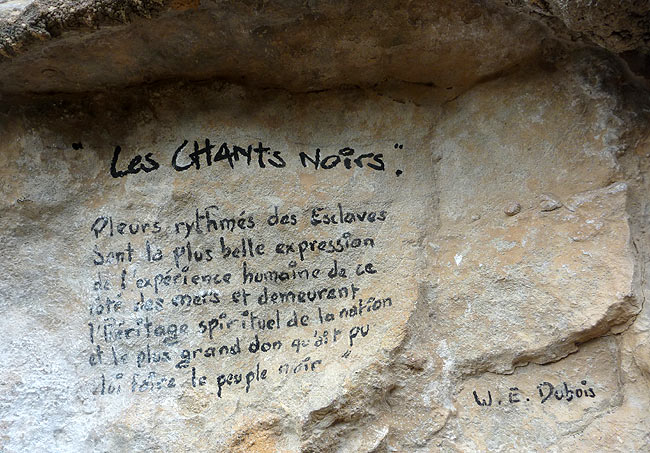 "Les CHANts Noirs".
Pleurs rythmés des Esclaves
Sont la plus belle expression
de l'expérience humaine de ce
côté des mers et demeurent
l'héritage spirituel de la nation
et le plus grand don qu'ait pu
lui faire le peuple noir"
W. E. Dubois